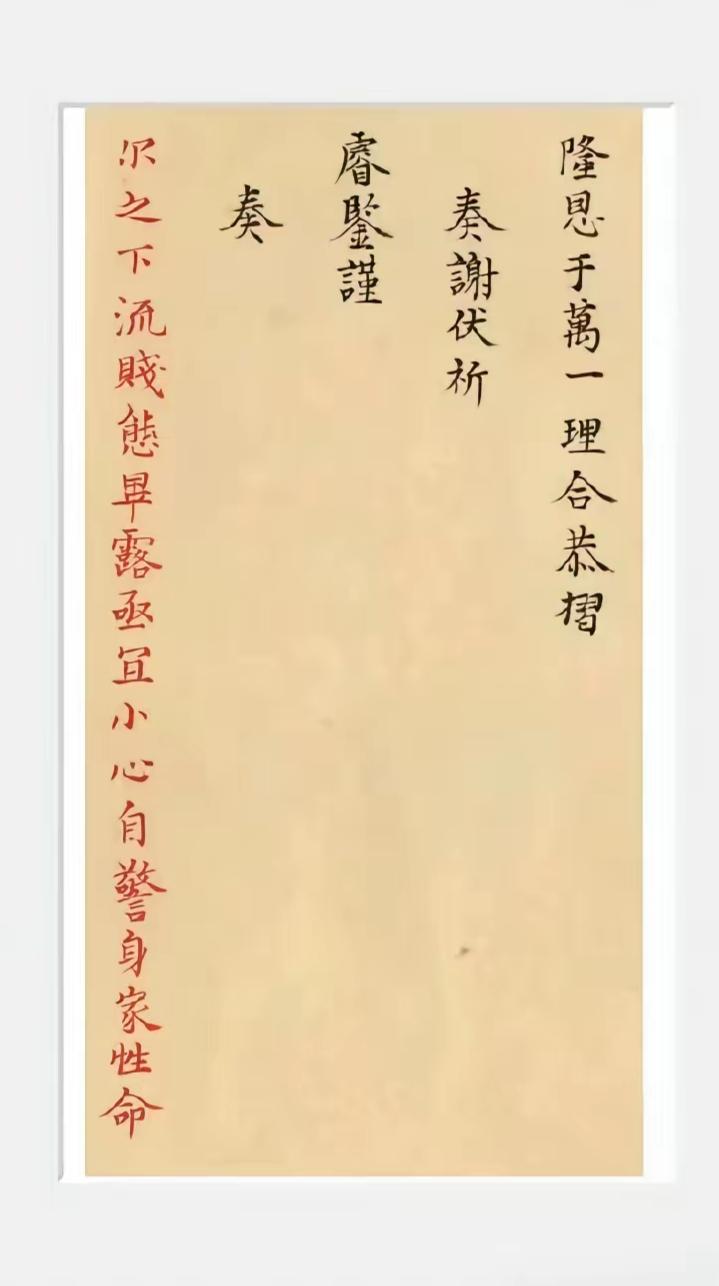 隆恩于萬一理合恭摺
奏謝伏祈
睿鑒謹
奏
尔之下流賤態畢露亟宜小心自警身家性命